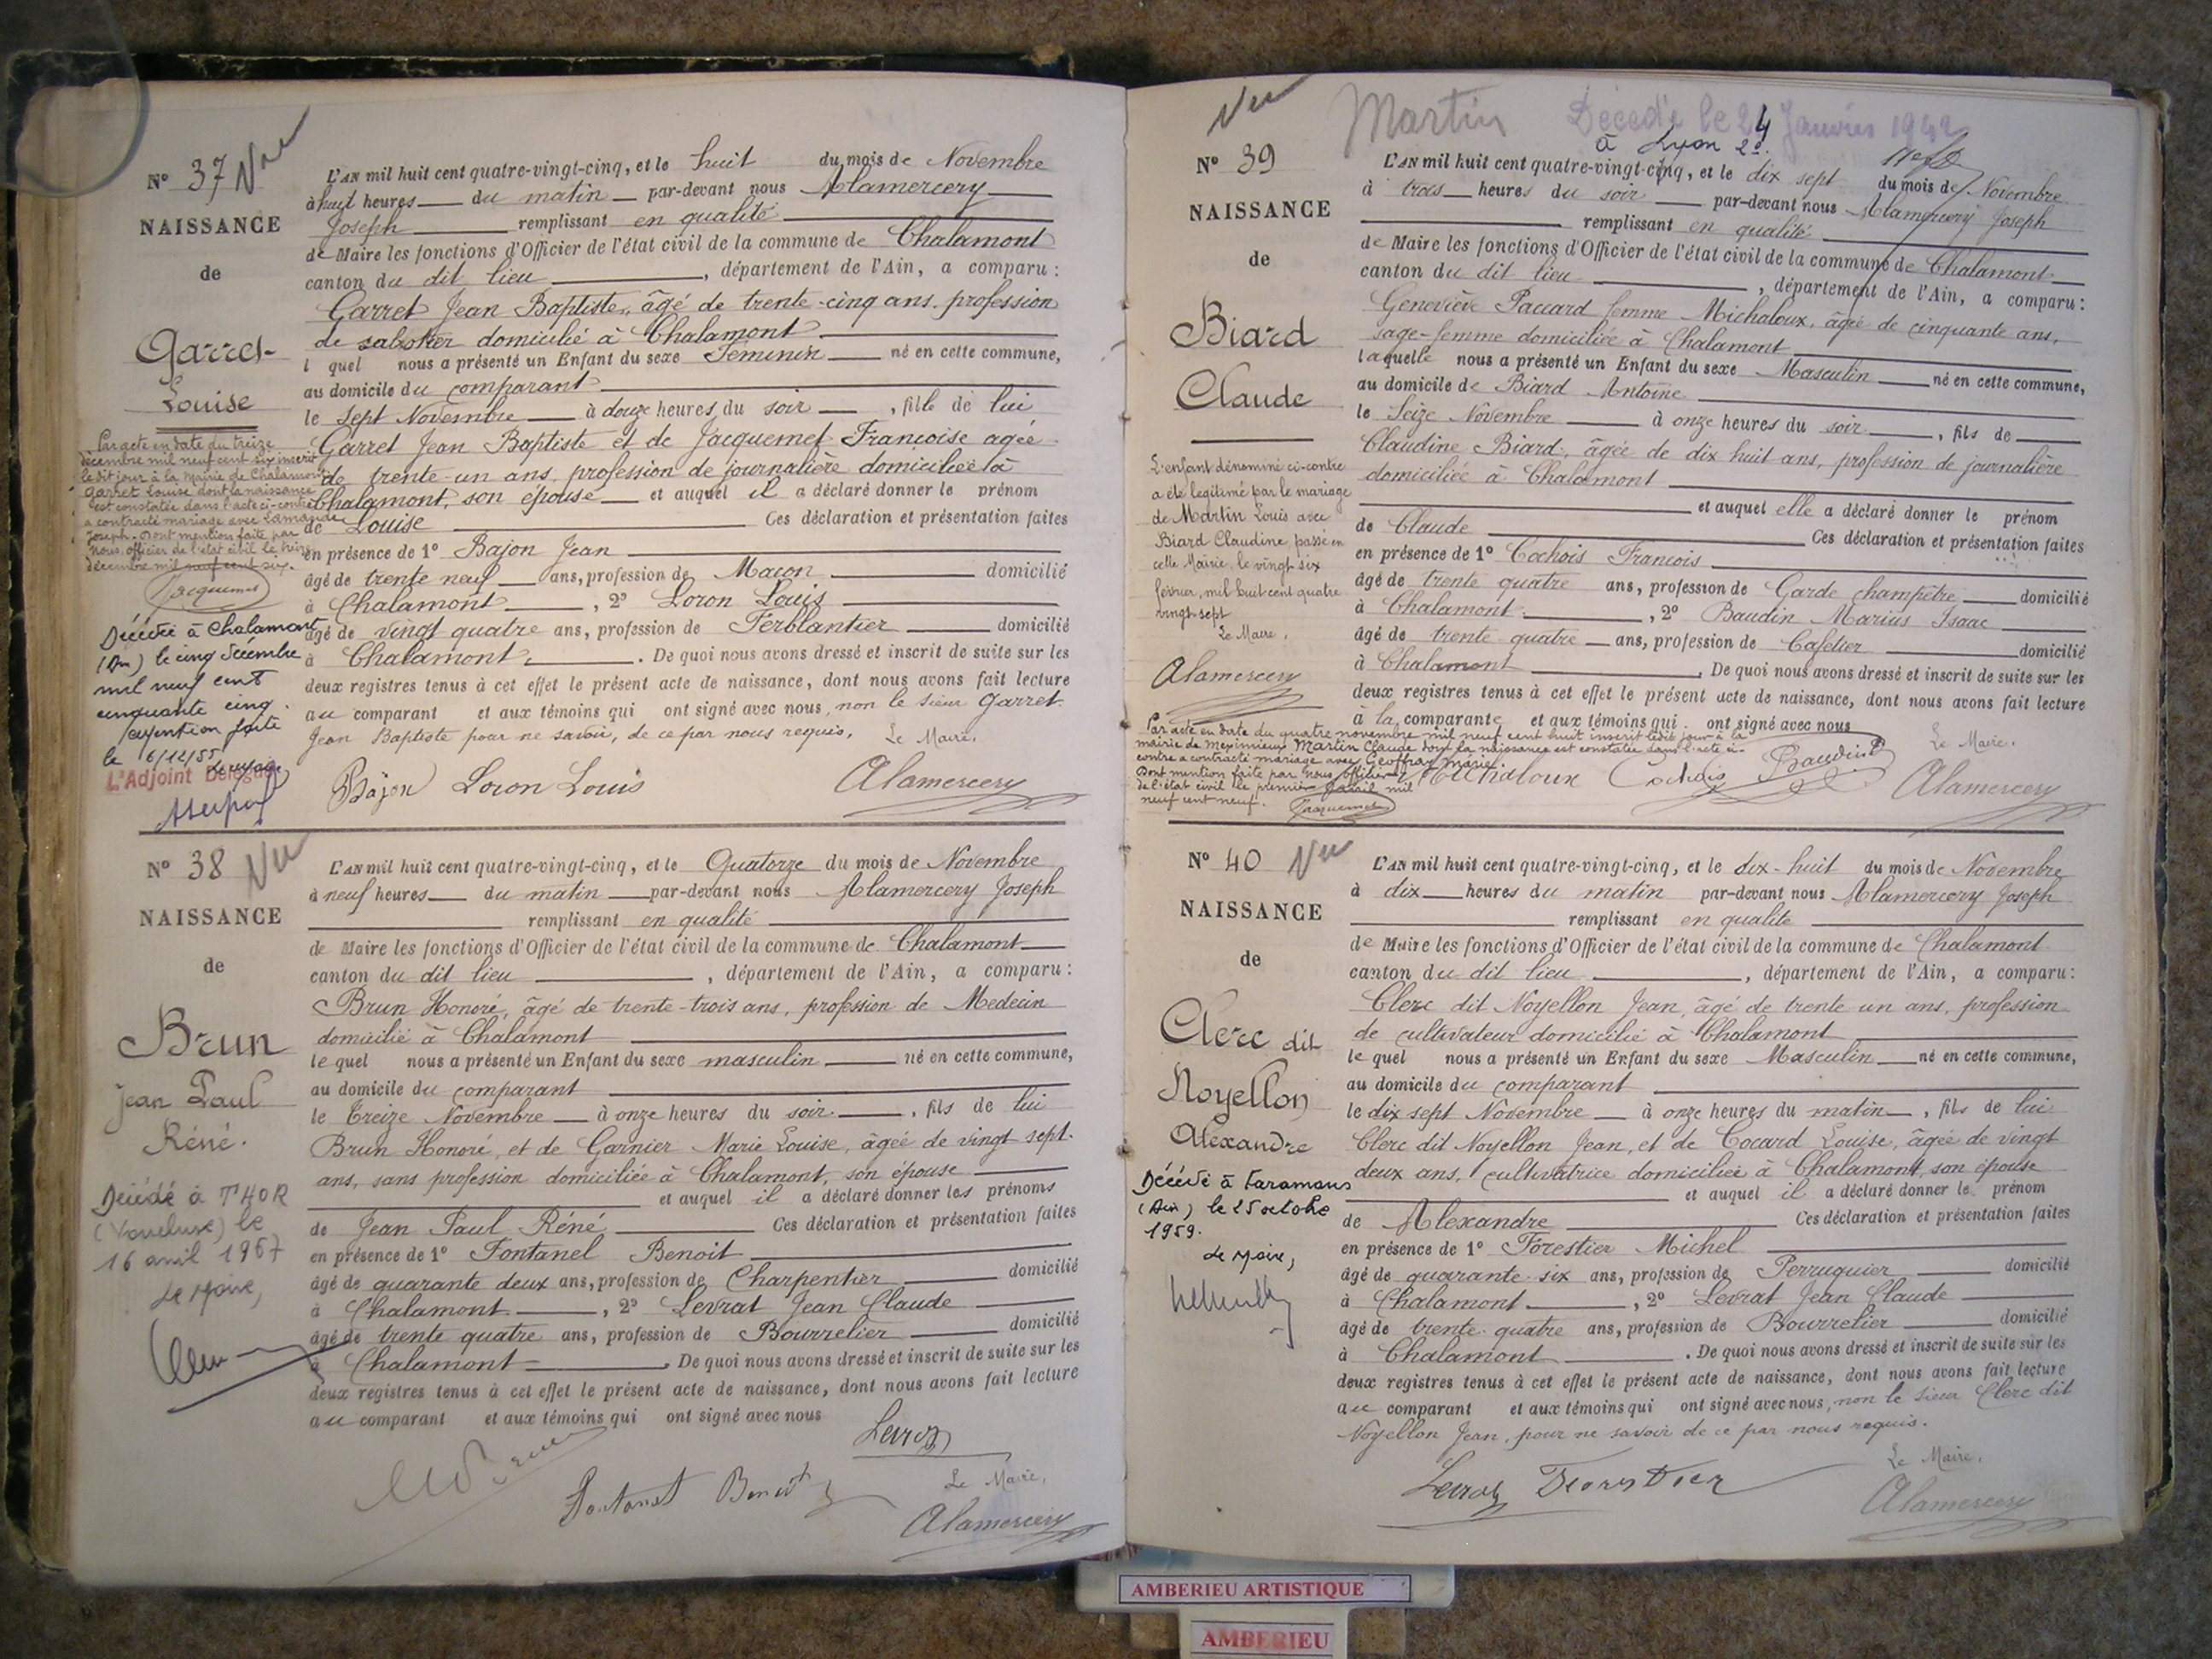 N° 37 Vu
NAISSANCE
de
Garret
Louise
Par acte en date du treize
décembre mil neuf cent six inscrit
le dit jour à la Mairie de Chalamont
Garret Louise dont la naissance
est constatée dans l'acte ci-contre
a contracté mariage avec
Joseph. Dont mention faite par
Nous, officier de l'état civil le treize
décembre mil neuf cent six.
Jacquemet
Décédée à Chalamont
(Ain) le cinq décembre
mil neuf cent
cinquante cinq.
mention faite
le 6/12/55
L'Adjoint Délégué
L'AN mil huit cent quatre-vingt-cinq, et le huit du mois de Novembre
à huit heures du matin par-devant nous Alamercery
Joseph remplissant en qualité
de Maire les fonctions d'Officier de l'état civil de la commune de Chalamont
canton du dit lieu , département de l'Ain, a comparu:
Garret Jean Baptiste, âgé de trente-cinq ans, profession
de sabotier domicilié à Chalamont
l quel nous a présenté un Enfant du sexe Féminin né en cette commune,
au domicile du comparant
le Sept Novembre à douze heures du soir , fille de lui
Garret Jean Baptiste et de Jacquemet Francoise agée
de trente-un ans, profession de journalière domiciliée à
Chalamont, son épouse et auquel il a déclaré donner le prénom
de Louise Ces déclaration et présentation faites
en présence de 1° Bajon Jean
âgé de trente neuf ans, profession de Macon domicilié
à Chalamont , 2° Loron Louis
âgé de vingt quatre ans, profession de Ferblantier domicilié
à Chalamont . De quoi nous avons dressé et inscrit de suite sur les
deux registres tenus à cet effet le présent acte de naissance, dont nous avons fait lecture
au comparant et aux témoins qui ont signé avec nous, non le sieur Garret
Jean Baptiste pour ne savoir, de ce par nous requis. Le Maire.
Bajon Loron Louis Alamercery
N° 38 Vu
NAISSANCE
de
Brun
Jean Paul
Réné.
Décédé à THOR
(Vaucluse) le
16 avril 1967
Le Maire,
L'AN mil huit cent quatre-vingt-cinq, et le Quatorze du mois de Novembre
à neuf heures du matin par-devant nous Alamercery Joseph
remplissant en qualité
de Maire les fonctions d'Officier de l'état civil de la commune de Chalamont
canton du dit lieu , département de l'Ain, a comparu:
Brun Honoré, âgé de trente-trois ans, profession de Medecin
domicilié à Chalamont
le quel nous a présenté un Enfant du sexe masculin né en cette commune,
au domicile du comparant
le Treize Novembre à onze heures du soir , fils de lui
Brun Honoré, et de Garnier Marie Louise, âgée de vingt sept
ans, sans profession domiciliée à Chalamont, son épouse
et auquel il a déclaré donner les prénoms
de Jean Paul Réné Ces déclaration et présentation faites
en présence de 1° Fontanel Benoit
âgé de quarante deux ans, profession de Charpentier domicilié
à Chalamont , 2° Levrat Jean Claude
âgé de trente quatre ans, profession de Bourrelier domicilié
à Chalamont . De quoi nous avons dressé et inscrit de suite sur les
deux registres tenus à cet effet le présent acte de naissance, dont nous avons fait lecture
au comparant et aux témoins qui ont signé avec nous
Levrat
Fontanel Benoit Le Maire,
Alamercery
Vu Martin Décédé le 24 Janvier 1942
à Lyon 2e.
N° 39
NAISSANCE
de
Biard
Claude
L'enfant dénommé ci-contre
a été légitimé par le mariage
de Martin Louis avec
Biard Claudine, passé en
cette Mairie, le vingt six
février, mil huit cent quatre
vingt sept
Le Maire,
Alamercery
L'AN mil huit cent quatre-vingt-cinq, et le dix sept du mois de Novembre
à trois heures du soir par-devant nous Alamercery Joseph
remplissant en qualité
de Maire les fonctions d'Officier de l'état civil de la commune de Chalamont
canton du dit lieu , département de l'Ain, a comparu:
Geneviève Paccard femme Michaloux, âgée de cinquante ans,
sage-femme domiciliée à Chalamont
laquelle nous a présenté un Enfant du sexe Masculin né en cette commune,
au domicile de Biard Antoine
le Seize Novembre à onze heures du soir , fils de
Claudine Biard, âgée de dix huit ans, profession de journalière
domiciliée à Chalamont
et auquel elle a déclaré donner le prénom
de Claude Ces déclaration et présentation faites
en présence de 1° Cochois Francois
âgé de trente quatre ans, profession de Garde champêtre domicilié
à Chalamont , 2° Baudin Marius Isaac
âgé de trente-quatre ans, profession de Cafetier domicilié
à Chalamont . De quoi nous avons dressé et inscrit de suite sur les
deux registres tenus à cet effet le présent acte de naissance, dont nous avons fait lecture
à la comparante et aux témoins qui ont signé avec nous
Par acte en date du quatre novembre mil neuf cent huit inscrit ledit jour à la
mairie de Meximieux Martin Claude dont la naissance est constatée dans l'acte ci-
contre a contracté mariage avec Geoffray Marie.
Dont mention faite par Nous officier
de l'état civil le premier avril mil
neuf cent neuf. Jacquemet
Michaloux Cochois Baudin Le Maire.
Alamercery
N° 40 Vu
NAISSANCE
de
Clerc dit
Noyellon
Alexandre
Décédé à Faramans
(Ain) le 25 octobre
1959.
Le Maire,
L'AN mil huit cent quatre-vingt-cinq, et le dix-huit du mois de Novembre
à dix heures du matin par-devant nous Alamercery Joseph
remplissant en qualité
de Maire les fonctions d'Officier de l'état civil de la commune de Chalamont
canton du dit lieu , département de l'Ain, a comparu:
Clerc dit Noyellon Jean, âgé de trente un ans, profession
de cultivateur domicilié à Chalamont
le quel nous a présenté un Enfant du sexe Masculin né en cette commune,
au domicile du comparant
le dix sept Novembre à onze heures du matin , fils de lui
Clerc dit Noyellon Jean, et de Cocard Louise, âgée de vingt
deux ans, cultivatrice domiciliée à Chalamont, son épouse
et auquel il a déclaré donner le prénom
de Alexandre Ces déclaration et présentation faites
en présence de 1° Forestier Michel
âgé de quarante-six ans, profession de Perruquier domicilié
à Chalamont , 2° Levrat Jean Claude
âgé de trente-quatre ans, profession de Bourrelier domicilié
à Chalamont . De quoi nous avons dressé et inscrit de suite sur les
deux registres tenus à cet effet le présent acte de naissance, dont nous avons fait lecture
au comparant et aux témoins qui ont signé avec nous, non le sieur Clerc dit
Noyellon Jean, pour ne savoir de ce par nous requis.
Le Maire.
Levrat Forestier Alamercery
AMBERIEU ARTISTIQUE
AMBERIEU